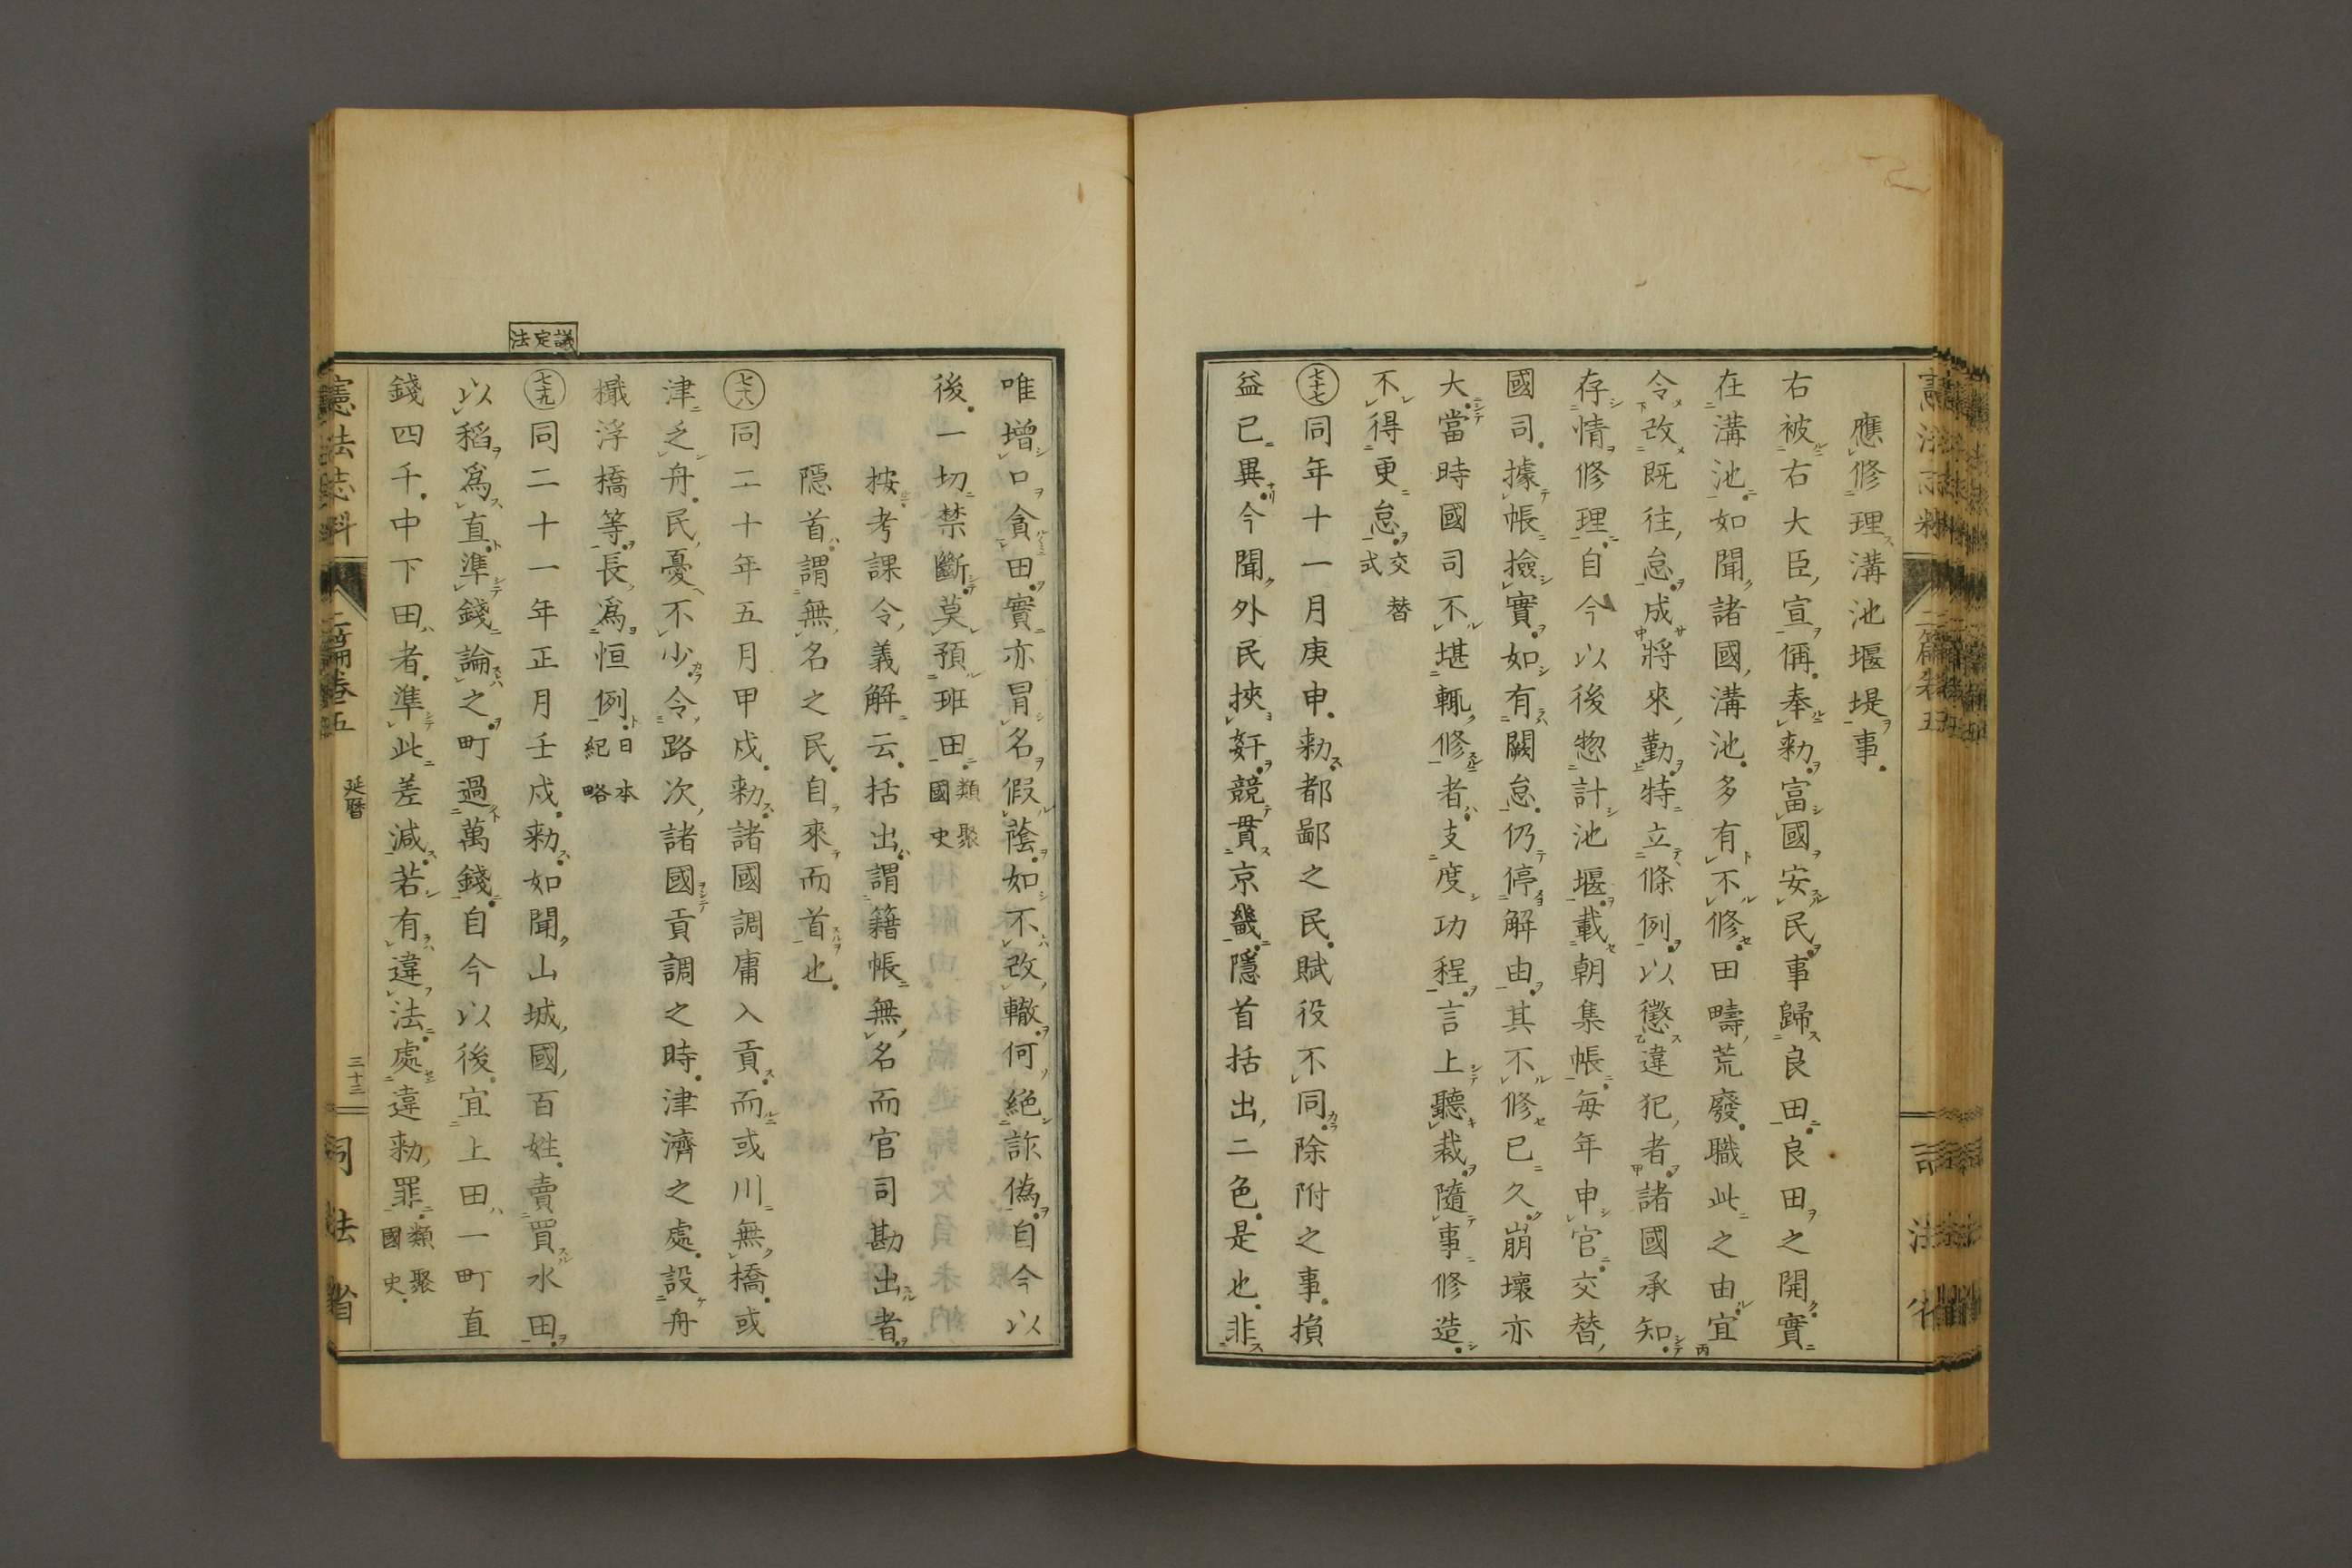 應修理溝池堰堤事
右被右大臣宣偁奉勅富國安民事歸良田良田之開實
在溝池如聞諸國溝池多有不修田疇荒廢職此之由宜
令改既往怠成將來勤特立條例以懲違犯者諸國承知
存情修理自今以後惣計池堰載朝集帳每年申官交替
國司據帳撿實如有闕怠仍停解由其不修已久崩壞亦
大當時國司不堪輒修者支度功程言上聽裁隨事修造
不得更怠交替式
七十七同年十一月庚申勅都鄙之民賦役不同除附之事損
益已異今聞外民挾姧競貫京畿隱首括出二色是也非
唯增口貪田實亦冒名假蔭如不改轍何絕詐僞自今以
後一切禁斷莫預班田類聚國史
按考課令義解云括出謂籍帳無名而官司勘出者
隱首謂無名之民自來而首也
七十八同二十年五月甲戌勅諸國調庸入貢而或川無橋或
津乏舟民憂不少令路次諸國貢調之時津濟之處設舟
檝浮橋等長爲恒例日本紀略
議定法
七十九同二十一年正月壬戌勅如聞山城國百姓賣買水田
以稻爲直準錢論之町過萬錢自今以後宜上田一町直
錢四千中下田者準此差減若有違法處違勅罪類聚國史
憲法志料 二篇卷五 延曆 三十三 司法省